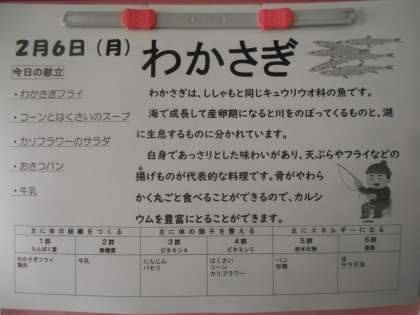 2月6日(月)
わかさぎ
今日の献立
・わかさぎフライ
・コーンとはくさいのスープ
・カリフラワーのサラダ
・おさつパン
・牛乳
わかさぎは、ししゃもと同じキュウリウオ科の魚です。
海で成長して産卵期になると川をのぼってくるものと、湖
に生息するものに分かれています。
白身であっさりとした味わいがあり、天ぷらやフライなどの
揚げものが代表的な料理です。骨がやわら
かく丸ごと食べることができるので、カルシ
ウムを豊富にとることができます。
主に体の組織をつくる 主に体の調子を整える 主にエネルギーになる
1群 2群 3群 4群 5群 6群
たんぱく質 無機質 ビタミンA ビタミンC 炭水化物 脂質
わかさぎフライ 牛乳 にんじん はくさい パン 油
鶏肉 パセリ コーン 砂糖 サラダ油
カリフラワー